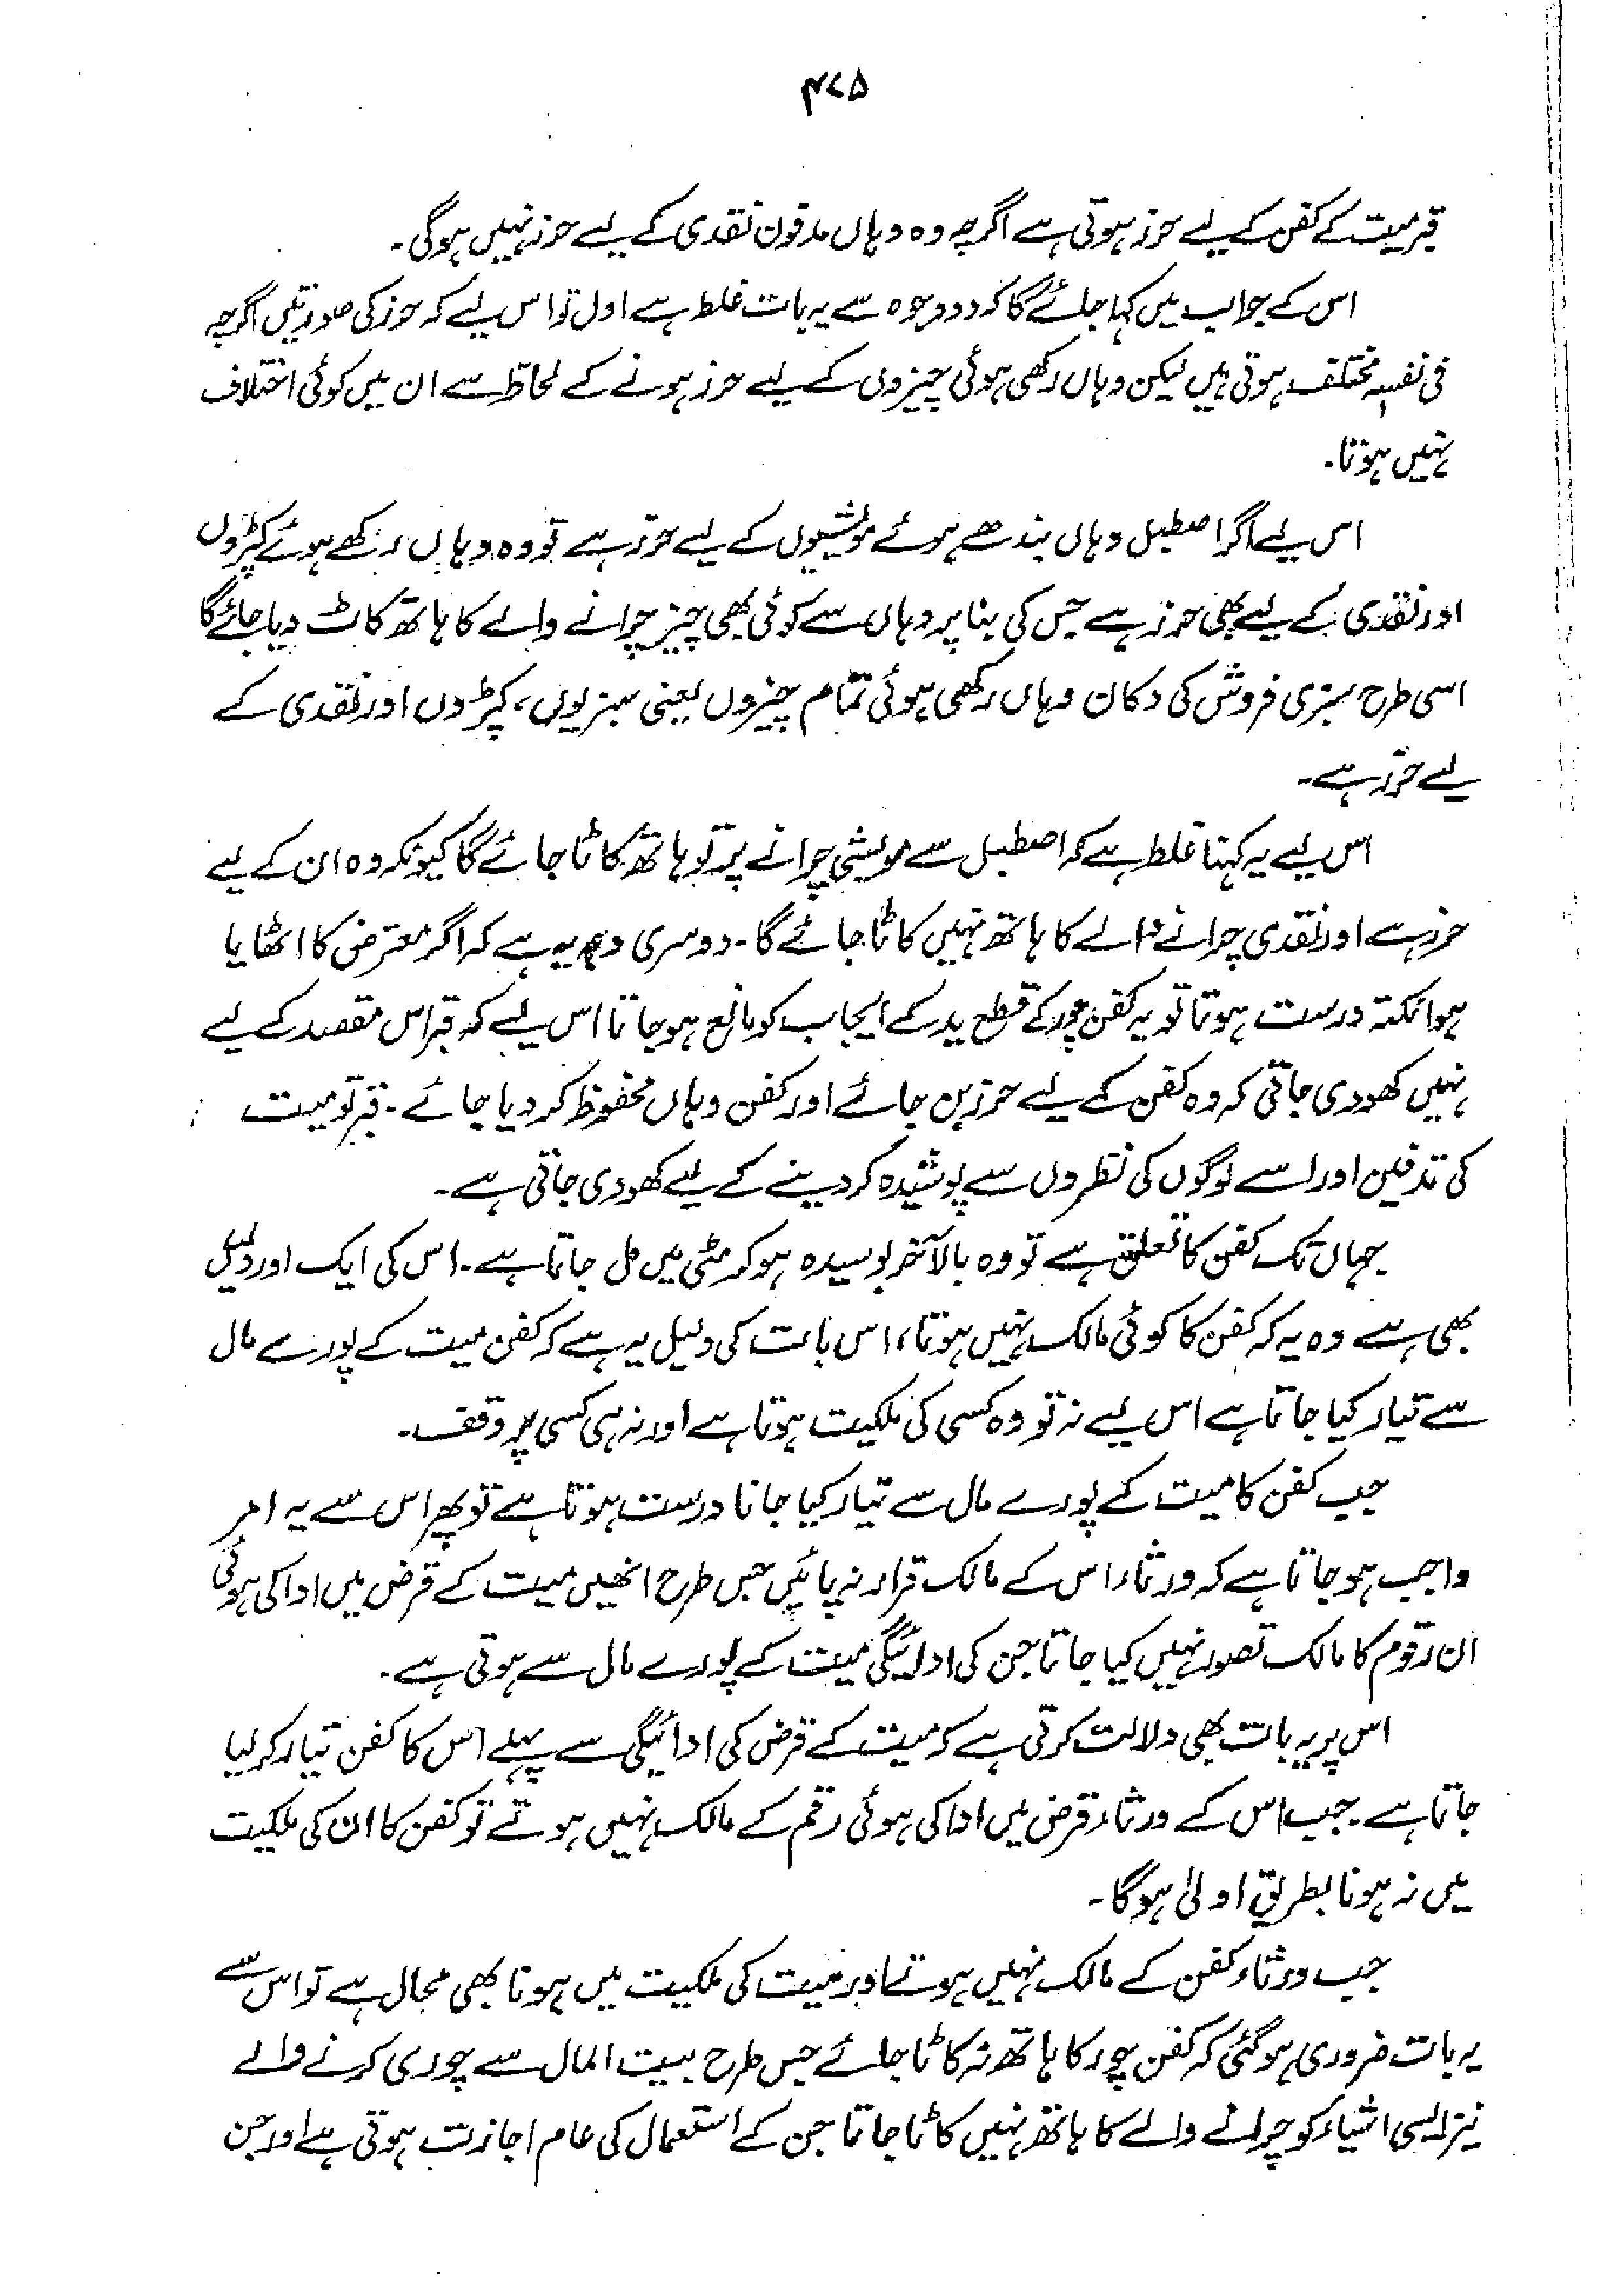 ۴۷۵
قبر میت کے کفن کے لیے حرز ہوتی ہے اگرچہ وہ وہاں مدفون نقدی کے لیے حرز نہیں ہوگی۔
اس کے جواب میں کہا جائے گا کہ دو وجوہ سے یہ بات غلط ہے اول تو اس لیے کہ حرز کی صورتیں اگرچہ
فی نفسہٖ مختلف ہوتی ہیں لیکن وہاں رکھی ہوئی چیزوں کے لیے حرز ہونے کے لحاظ سے ان میں کوئی اختلاف
نہیں ہوتا۔
اس لیے اگر اصطبل وہاں بندھے ہوئے مویشیوں کے لیے حرز ہے تو وہ وہاں رکھے ہوئے کپڑوں
اور نقدی کے لیے بھی حرز ہے جس کی بنا پر وہاں سے کوئی بھی چیز چرانے والے کا ہاتھ کاٹ دیا جائے گا
اسی طرح سبزی فروش کی دکان وہاں رکھی ہوئی تمام چیزوں یعنی سبزیوں، کپڑوں اور نقدی کے
لیے حرز ہے۔
اس لیے یہ کہنا غلط ہے کہ اصطبل سے مویشی چرانے پر تو ہاتھ کاٹا جائے گا کیونکہ وہ ان کے لیے
حرز ہے اور نقدی چرانے والے کا ہاتھ نہیں کاٹا جائے گا۔ دوسری وجہ یہ ہے کہ اگر معترض کا اٹھایا
ہوا نکتہ درست ہوتا تو یہ کفن چور کے قطع ید کے ایجاب کو مانع ہو جاتا اس لیے کہ قبر اس مقصد کے لیے
نہیں کھودی جاتی کہ وہ کفن کے لیے حرز بن جائے اور کفن وہاں محفوظ کر دیا جائے۔ قبر تو میت
کی تدفین اور اسے لوگوں کی نظروں سے پوشیدہ کر دینے کے لیے کھودی جاتی ہے۔
جہاں تک کفن کا تعلق ہے تو وہ بالآخر بوسیدہ ہو کر مٹی میں مل جاتا ہے۔ اس کی ایک اور دلیل
بھی ہے وہ یہ کہ کفن کا کوئی مالک نہیں ہوتا، اس بات کی دلیل یہ ہے کہ کفن میت کے پورے مال
سے تیار کیا جاتا ہے اس لیے نہ تو وہ کسی کی ملکیت ہوتا ہے اور نہ ہی کسی پر وقف۔
جب کفن کا میت کے پورے مال سے تیار کیا جانا درست ہوتا ہے تو پھر اس سے یہ امر
واجب ہو جاتا ہے کہ ورثاء اس کے مالک قرار نہ پائیں جس طرح انھیں میت کے قرض میں ادا کی ہوئی
ان رقوم کا مالک تصور نہیں کیا جاتا جن کی ادائیگی میت کے پورے مال سے ہوتی ہے۔
اس پر یہ بات بھی دلالت کرتی ہے کہ میت کے قرض کی ادائیگی سے پہلے اس کا کفن تیار کر لیا
جاتا ہے۔ جب اس کے ورثاء قرض میں ادا کی ہوئی رقم کے مالک نہیں ہوتے تو کفن کا ان کی ملکیت
میں نہ ہونا بطریق اولیٰ ہوگا۔
جب ورثاء کفن کے مالک نہیں ہوتے اور میت کی ملکیت میں ہونا بھی محال ہے تو اس سے
یہ بات ضروری ہو گئی کہ کفن چور کا ہاتھ نہ کاٹا جائے جس طرح بیت المال سے چوری کرنے والے
نیز ایسی اشیاء کو چرانے والے کا ہاتھ نہیں کاٹا جاتا جن کے استعمال کی عام اجازت ہوتی ہے اور جن